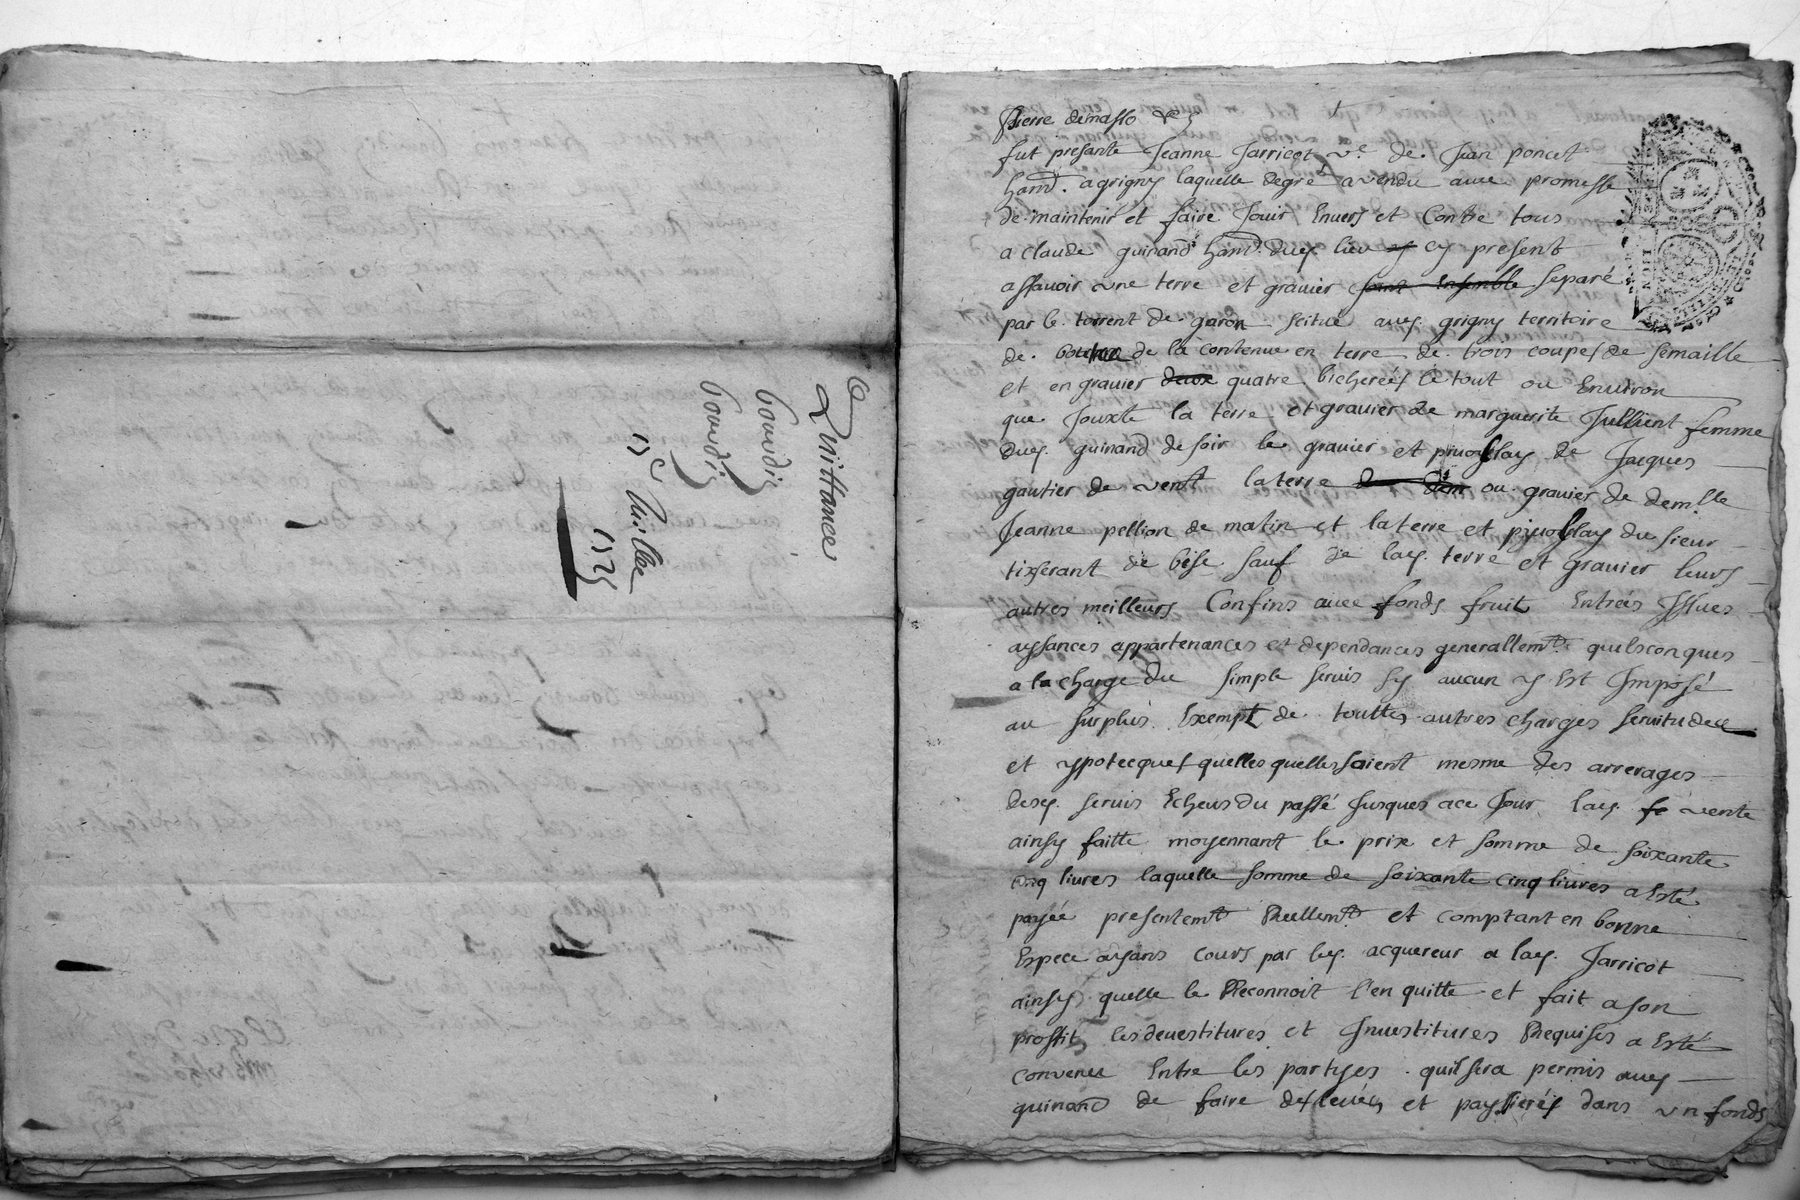 Quittance
bourdis
bourdis
15e Juillee
1725
Pierre demasso &c
fut presante Jeanne Jarricot ve. de Jean poncet
hant. a grigny laquelle de gré a vendu avec promesse
de maintenir et faire Jouir Envers et Contre tous
a claude guinand hant. dud. lieu cy present
assavoir une terre et gravier joint Ensemble separé
par le torrent de garon scitué aud. grigny territoire
de de la contenue en terre de trois coupes de semaille
et en gravier deux quatre bicherées le tout ou Environ
que Jouxte la terre et gravier de marguerite Jullient femme
dud. guinand de soir le gravier et de Jacques
gautier de vent la terre ou gravier de demlle
Jeanne pellion de matin et la terre et du sieur
tixserant de bise sauf de lad. terre et gravier leurs
autres meilleurs Confins avec fonds fruit Entrées Issues
aysances appartenances et dependances generallemt. quelsconques
a la charge du simple servis sy aucun y Est Imposé
au surplus Exempt de touttes autres charges servitudes
et ypotecques quelles quelles soient mesme des arrerages
desd. servis Echeus du passé Jusques a ce Jour lad. vente
ainsy faitte moyennant le prix et somme de soixante
cinq livres laquelle somme de soixante cinq livres a Esté
payée presentemt. Reellemt. et comptant en bonne
Espece ayans cours par led. acquereur a lad. Jarricot
ainsy quelle le Reconnoit l'en quitte et fait a son
proffit les devestitures et Investitures Requises a Esté
convenu Entre les partyes quil sera permis aud.
guinand de faire des levées et dans un fonds